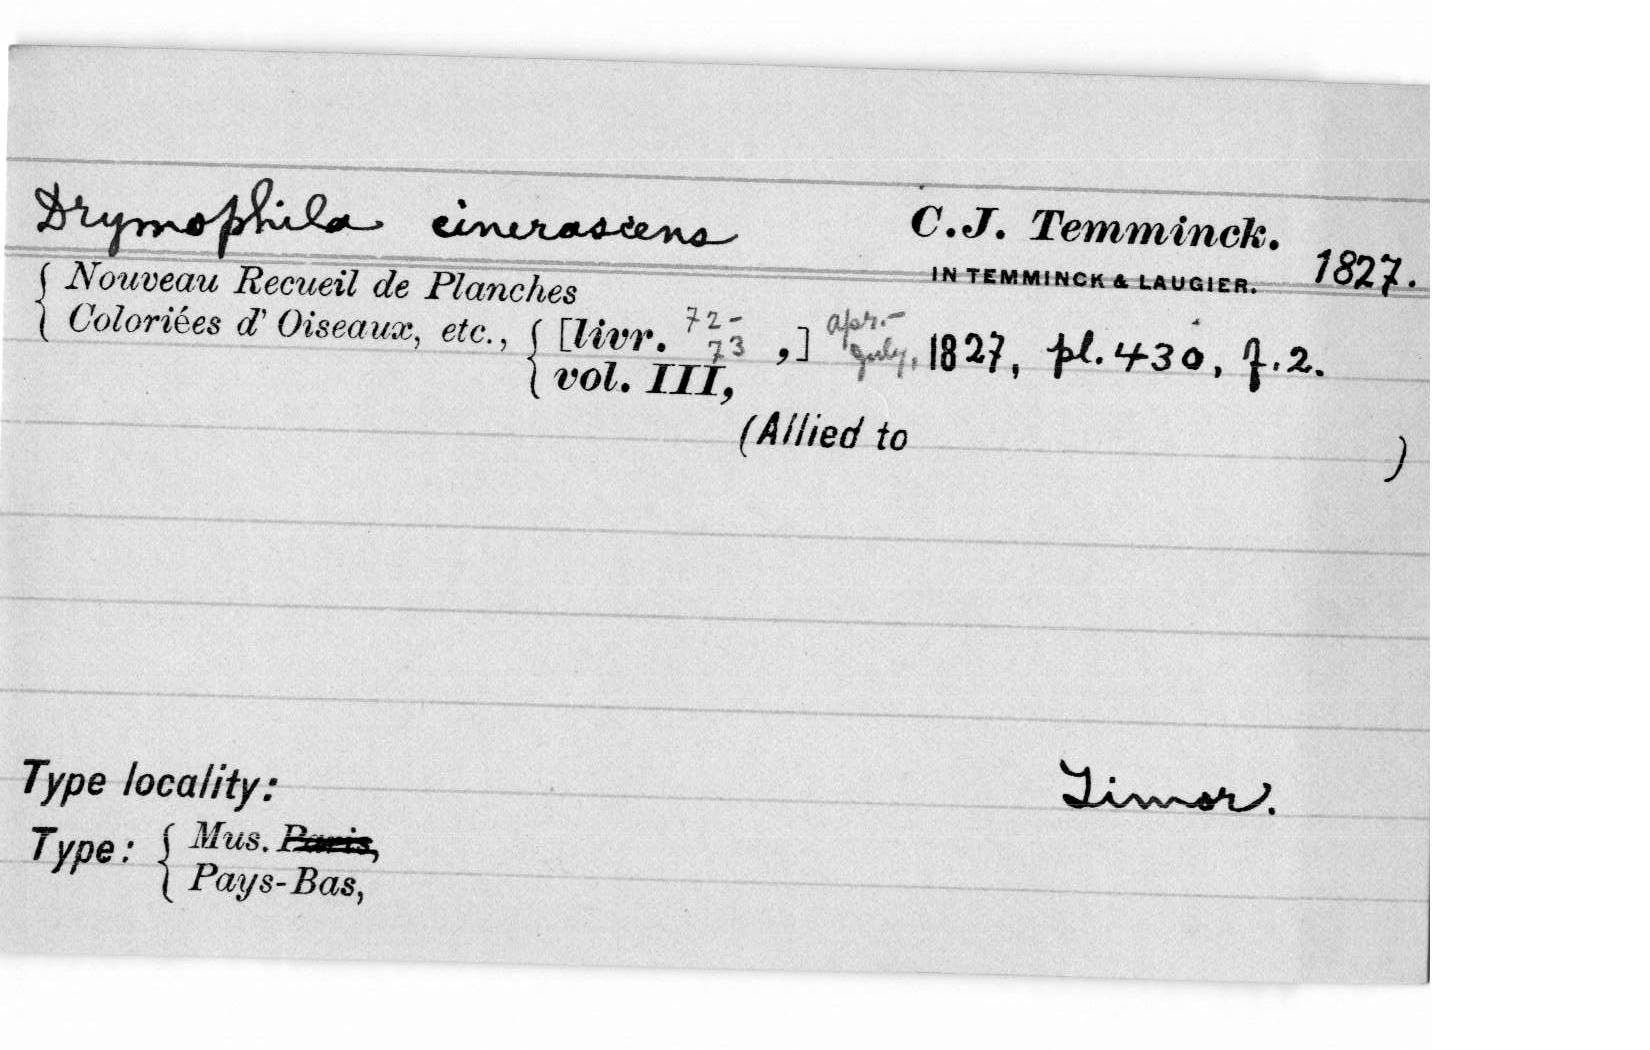 Drymophila cinerascens C.J. Temminck.
IN TEMMINCK & LAUGIER. 1827.
Nouveau Recueil de Planches
Coloriées d' Oiseaux, etc., [livr. 72-73,] apr.-july, 1827, pl. 430, f. 2.
vol. III,
(Allied to )
Type locality: Timor.
Type: Mus. Paris,
Pays-Bas,